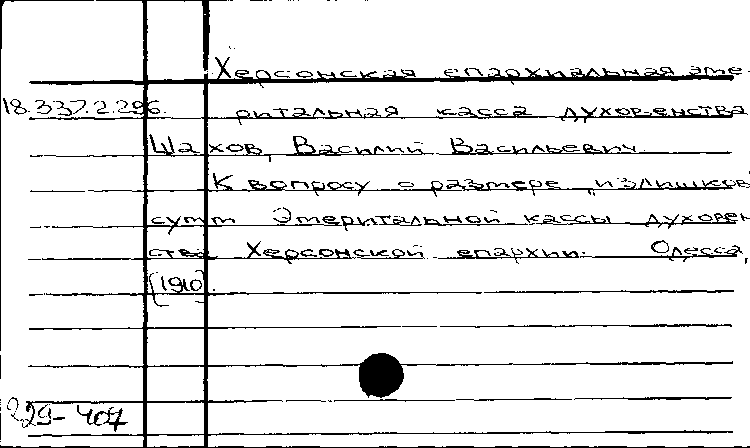 Херсонская епархиальная эме-
18.337.2.296. ритальная касса духовенства
Шахов, Василий Васильевич.
К вопросу о размере „излишков"
сумм Эмеритальной кассы духовен
ства Херсонской епархии. Одесса,
[1910].
229-407